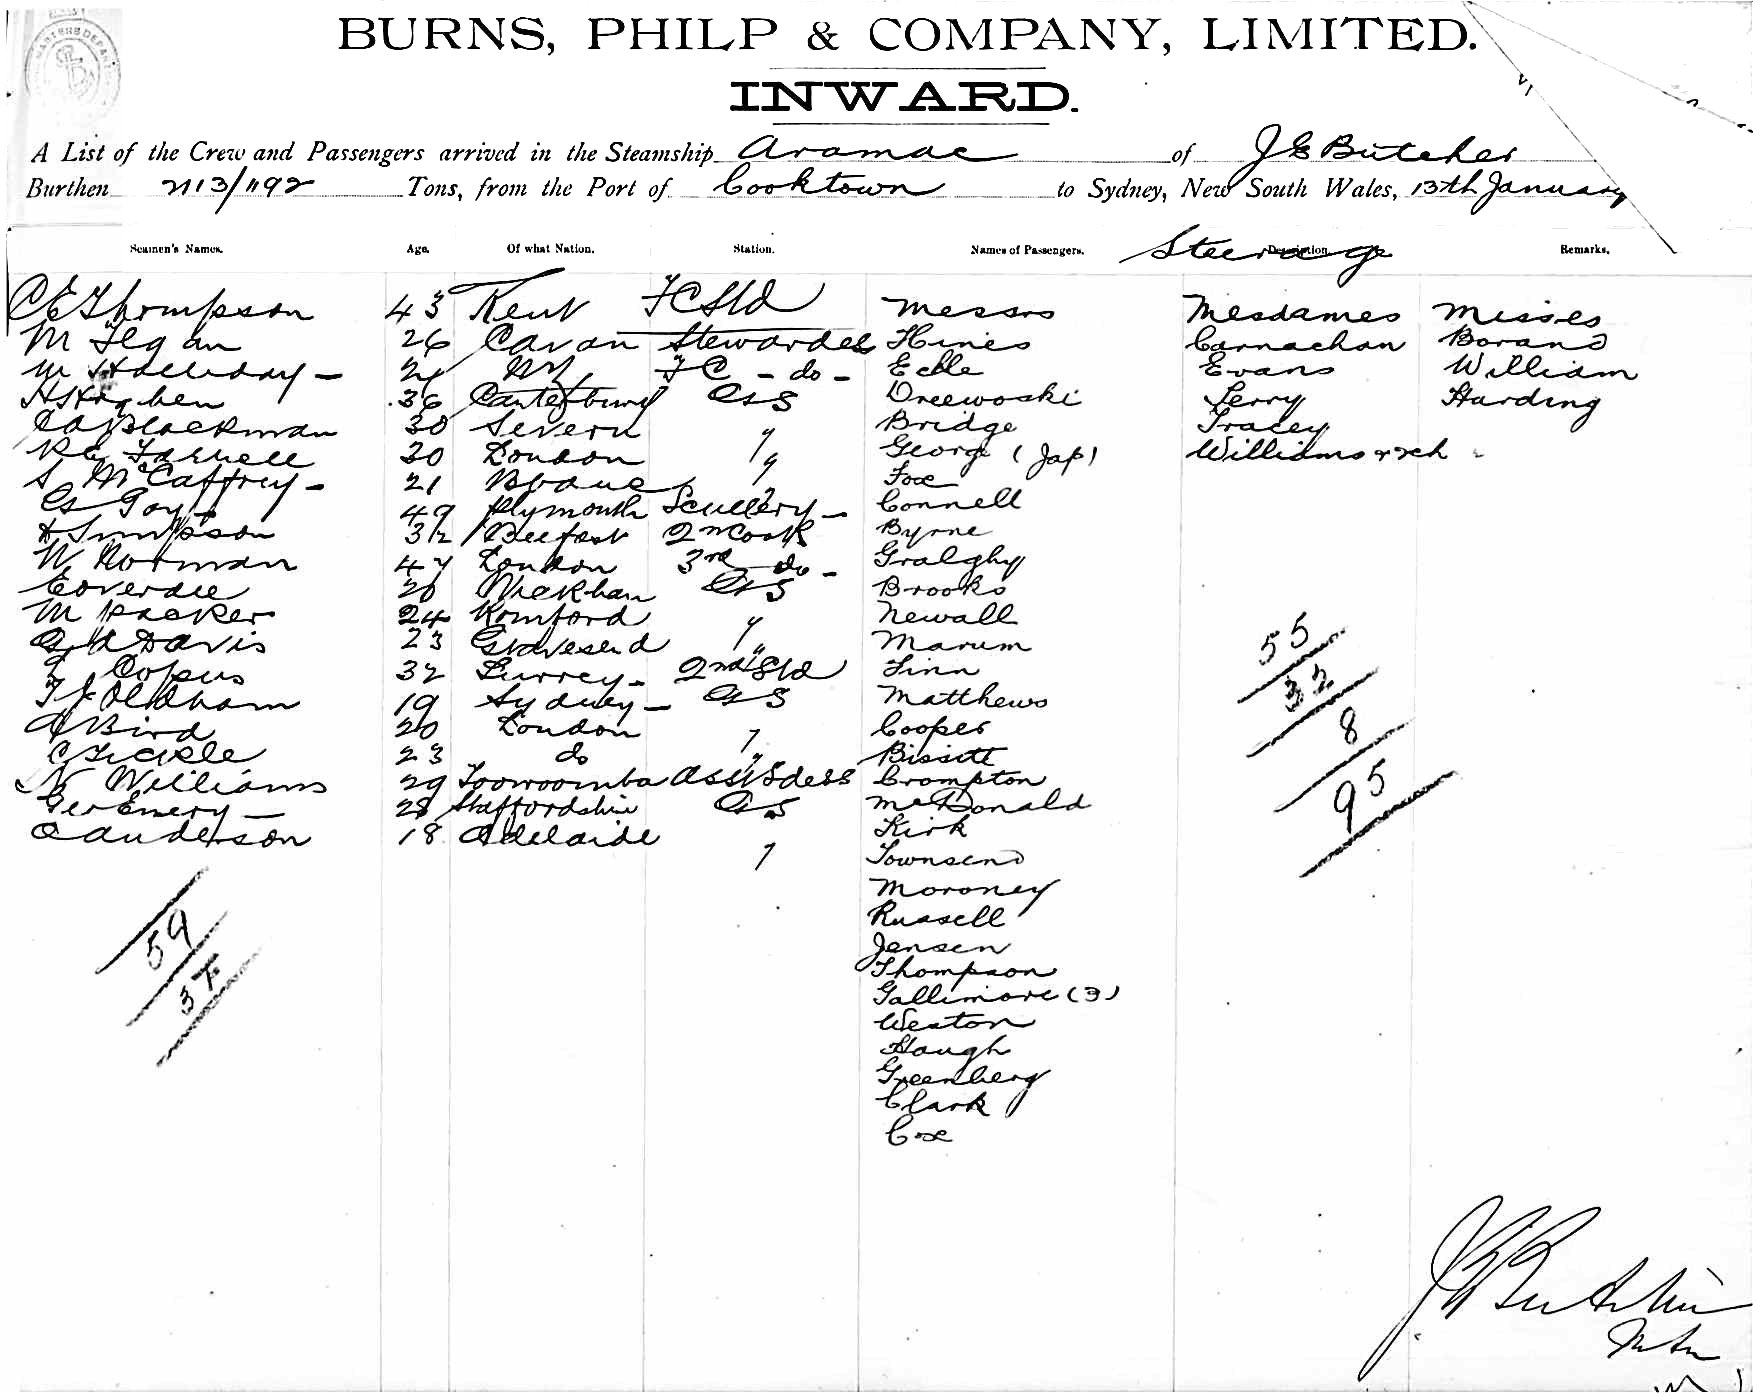 BURNS, PHILP & COMPANY, LIMITED.
INWARD.
A List of the Crew and Passengers arrived in the Steamship Aramac of J G Butcher
Burthen 2113/1192 Tons, from the Port of Cooktown to Sydney, New South Wales, 13th January
Seamen's Names. Age. Of what Nation. Station. Names of Passengers. Description Steerage Remarks.
C E Thompson 43 Kent F C Std Messrs Mesdames Misses
M Flgan 26 Cavan Stewardess Hines Carnachan Borano
M Holliday - NZ F C - do - Eckle Evans William
36 Canterbury G S Dreewoski Terry Harding
C A Blackman 30 Severn " Bridge Tracey
R E Farnell 30 London " George (Jap) Williams & 2ch
S McCaffrey - 21 " Fox
G Goy - 49 Plymouth Scullery - Connell
H Simpson 32 Belfast 2nd Cook Byrne
W Norman 47 London 3rd do - Gralghy
Coverdle 20 Wickham G S Brooks
M Packer 24 Romford " Newall
G A Davis 23 Gravesend " Marum
Copus 32 Surrey - 2nd Std Finn
T J Oldham 19 Sydney - G S Matthews
A Bird 20 London " Cooper
C Tickle 23 do " Bissett
N Williams 29 Toowoomba Asst Stdess Crompton
Geo Emery - 28 Staffordshire G S McDonald
C Anderson 18 Adelaide " Kirk
Townsend
Moroney
Russell
Jensen
Thompson
Gallimore (3)
Weston
Haugh
Greenberg
Clark
Cox
59
37
55
32
8
95
J G Butcher